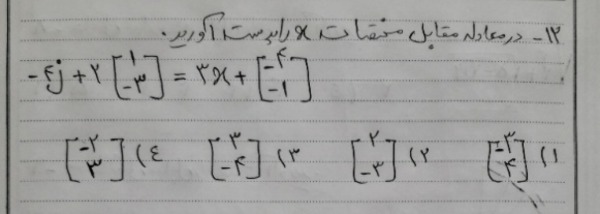 ۱۲- در معادله مقابل مختصات x را بدست آورید.
-۴j + ۲[۱ -۳] = ۳x + [-۴ -۱]
۱) [-۳ ۴] ۲) [۲ -۳] ۳) [۳ -۴] ۴) [-۲ ۳]